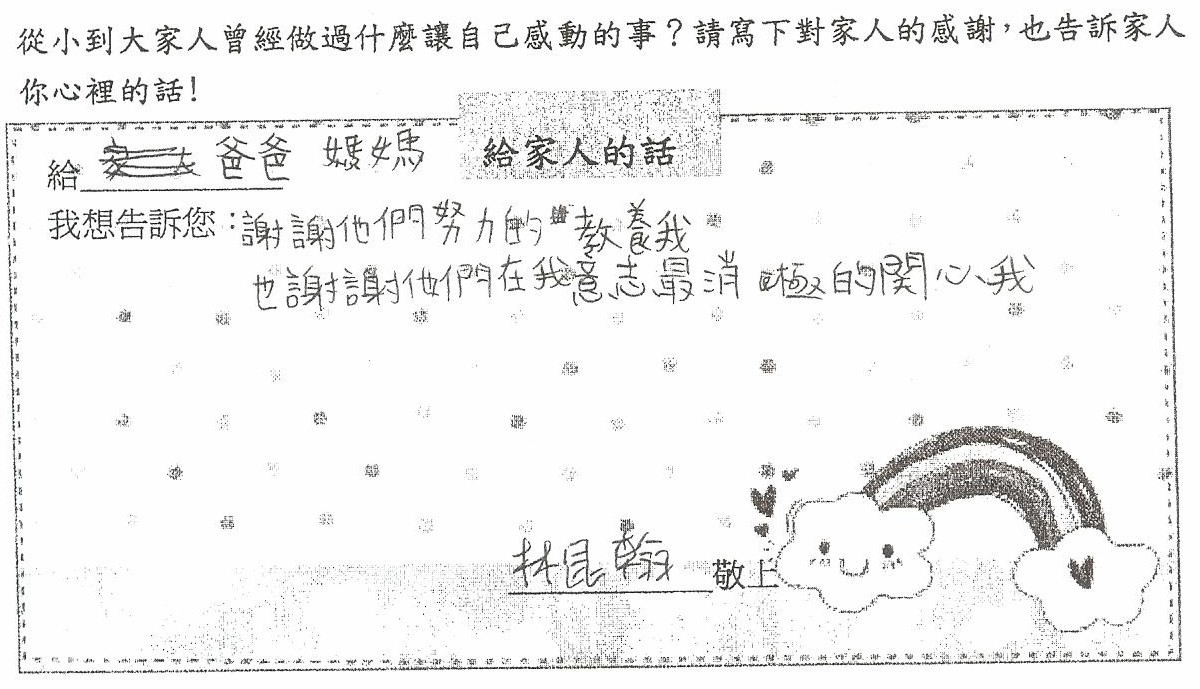 從小到大家人曾經做過什麼讓自己感動的事？請寫下對家人的感謝，也告訴家人
你心裡的話！
給家人的話
給 爸爸 媽媽
我想告訴您：謝謝他們努力的教養我
也謝謝他們在我意志最消極的関心我
林昆翰 敬上